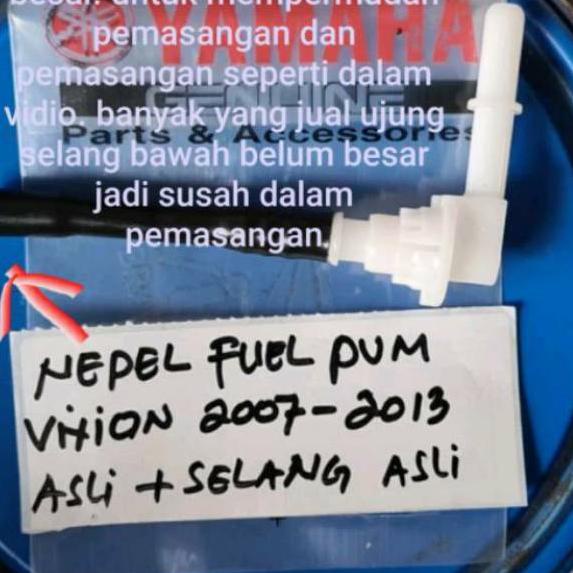 besar. untuk mempermudah
pemasangan dan
pemasangan seperti dalam
vidio. banyak yang jual ujung
selang bawah belum besar
jadi susah dalam
pemasangan.
YAMAHA
GENUINE
Parts & Accessories
NEPEL FUEL PUM
VIXION 2007-2013
ASLi + SELANG ASLi